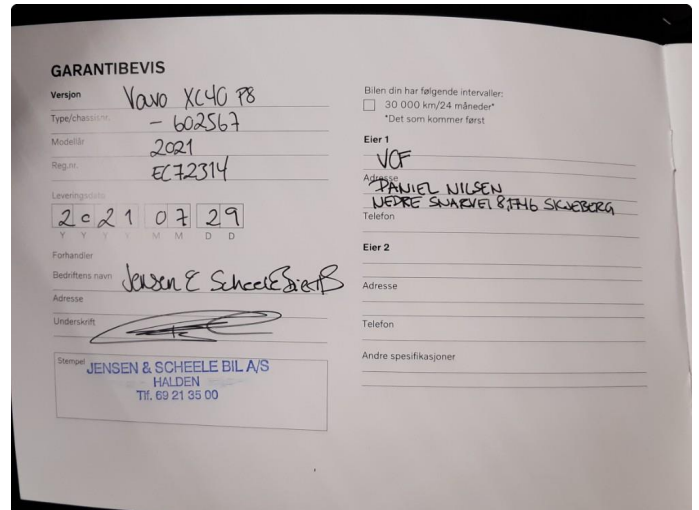 GARANTIBEVIS
Versjon Vovo XC40 P8
Type/chassisnr. - 602567
Modellår 2021
Reg.nr. EC72314
Leveringsdato
2021 07 29
Y Y Y Y M M D D
Forhandler
Bedriftens navn Jensen & Scheele
Adresse
Underskrift
Stempel JENSEN & SCHEELE BIL A/S
HALDEN
Tlf. 69 21 35 00
Bilen din har følgende intervaller:
30 000 km/24 måneder*
*Det som kommer først
Eier 1
VCF
Adresse
DANIEL NILSEN
NEDRE SNARVEI 8, 1746 SKJEBERG
Telefon
Eier 2
Adresse
Telefon
Andre spesifikasjoner